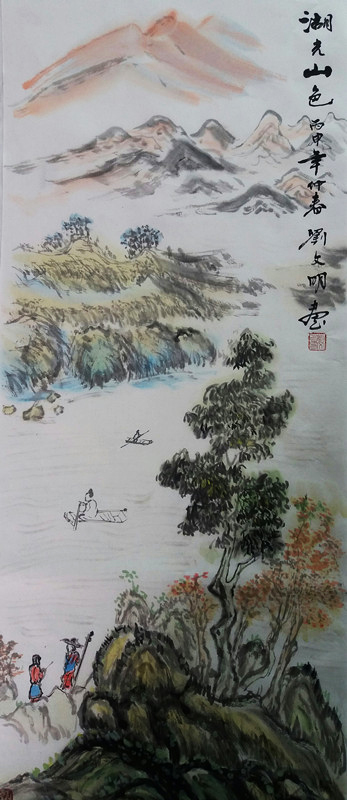 湖光山色 丙申年仲春 劉文明畫